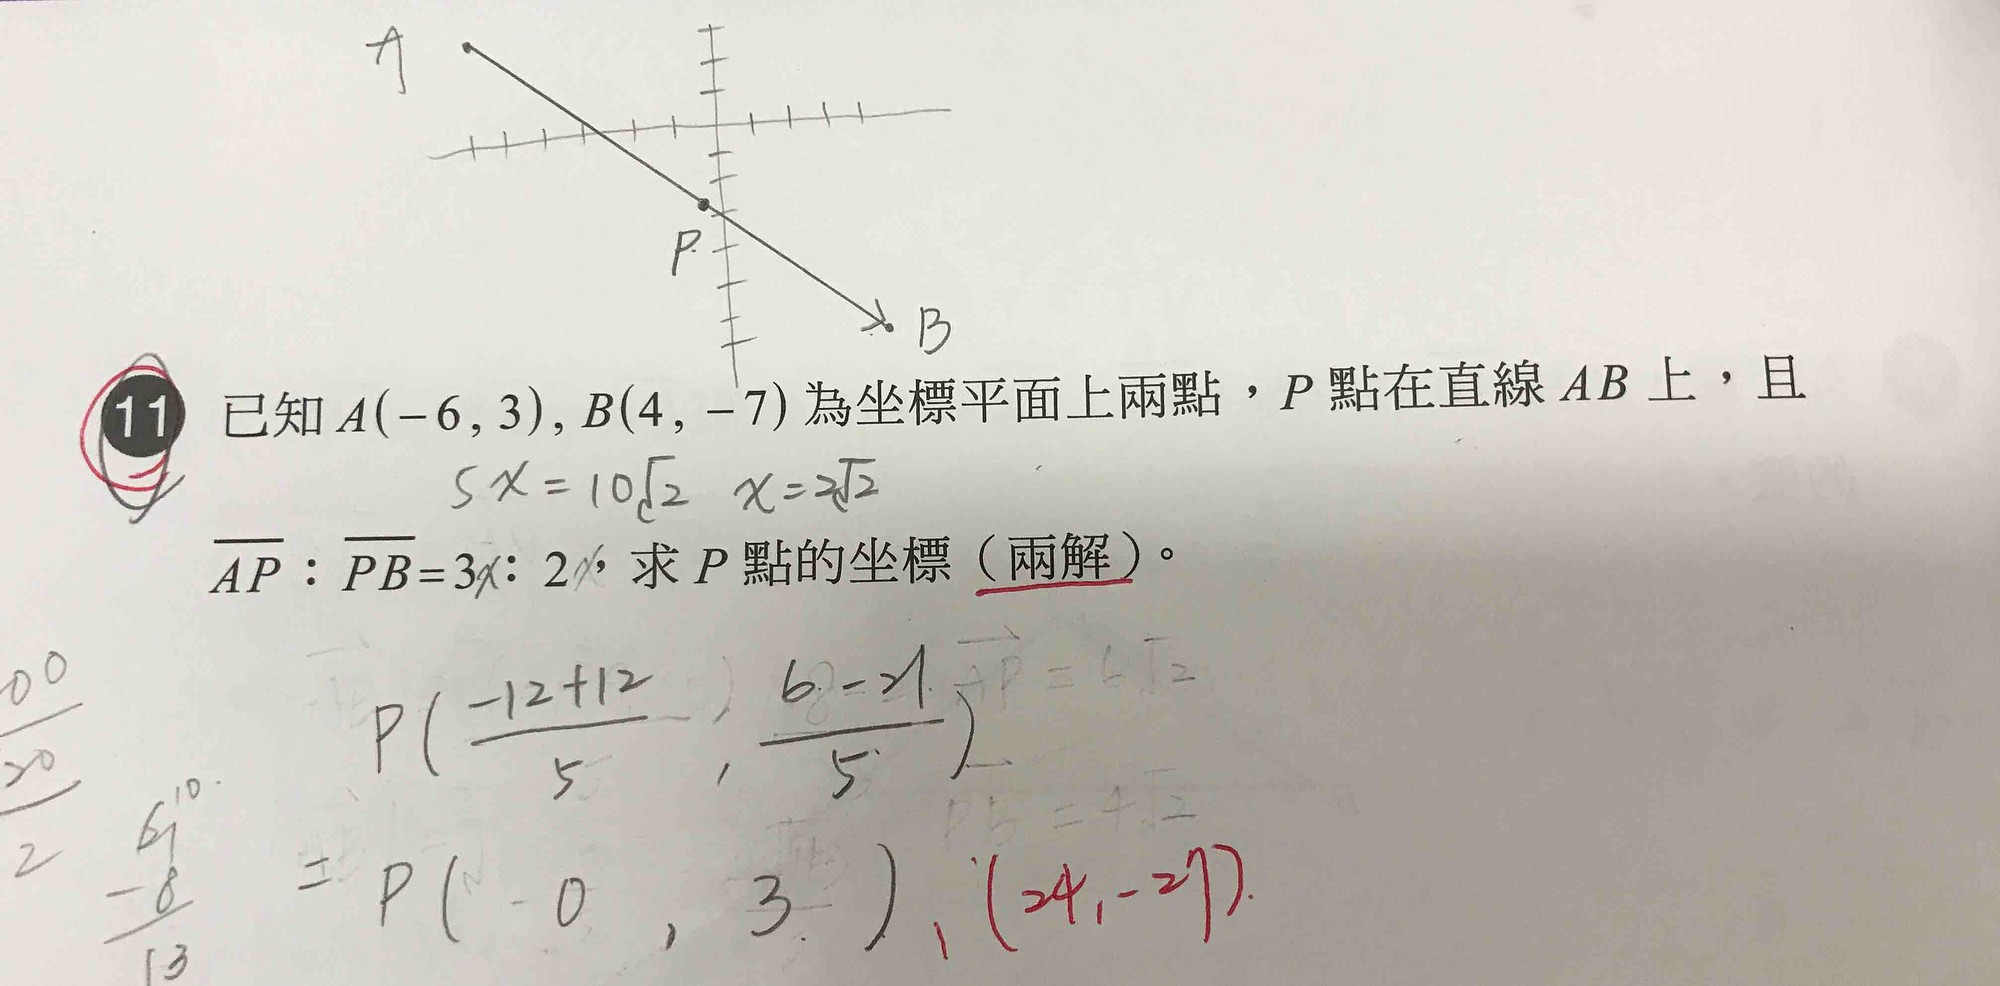 A
P
B
11 已知 A(−6, 3), B(4, −7) 為坐標平面上兩點，P 點在直線 AB 上，且
5x=10√2 x=2√2
AP：PB=3x：2x，求 P 點的坐標（兩解）。
P(-12+12/5, 6-21/5)
AP=6√2
PB=4√2
=P(-0, 3), (24,-27).
00
20
2
10
-8
13